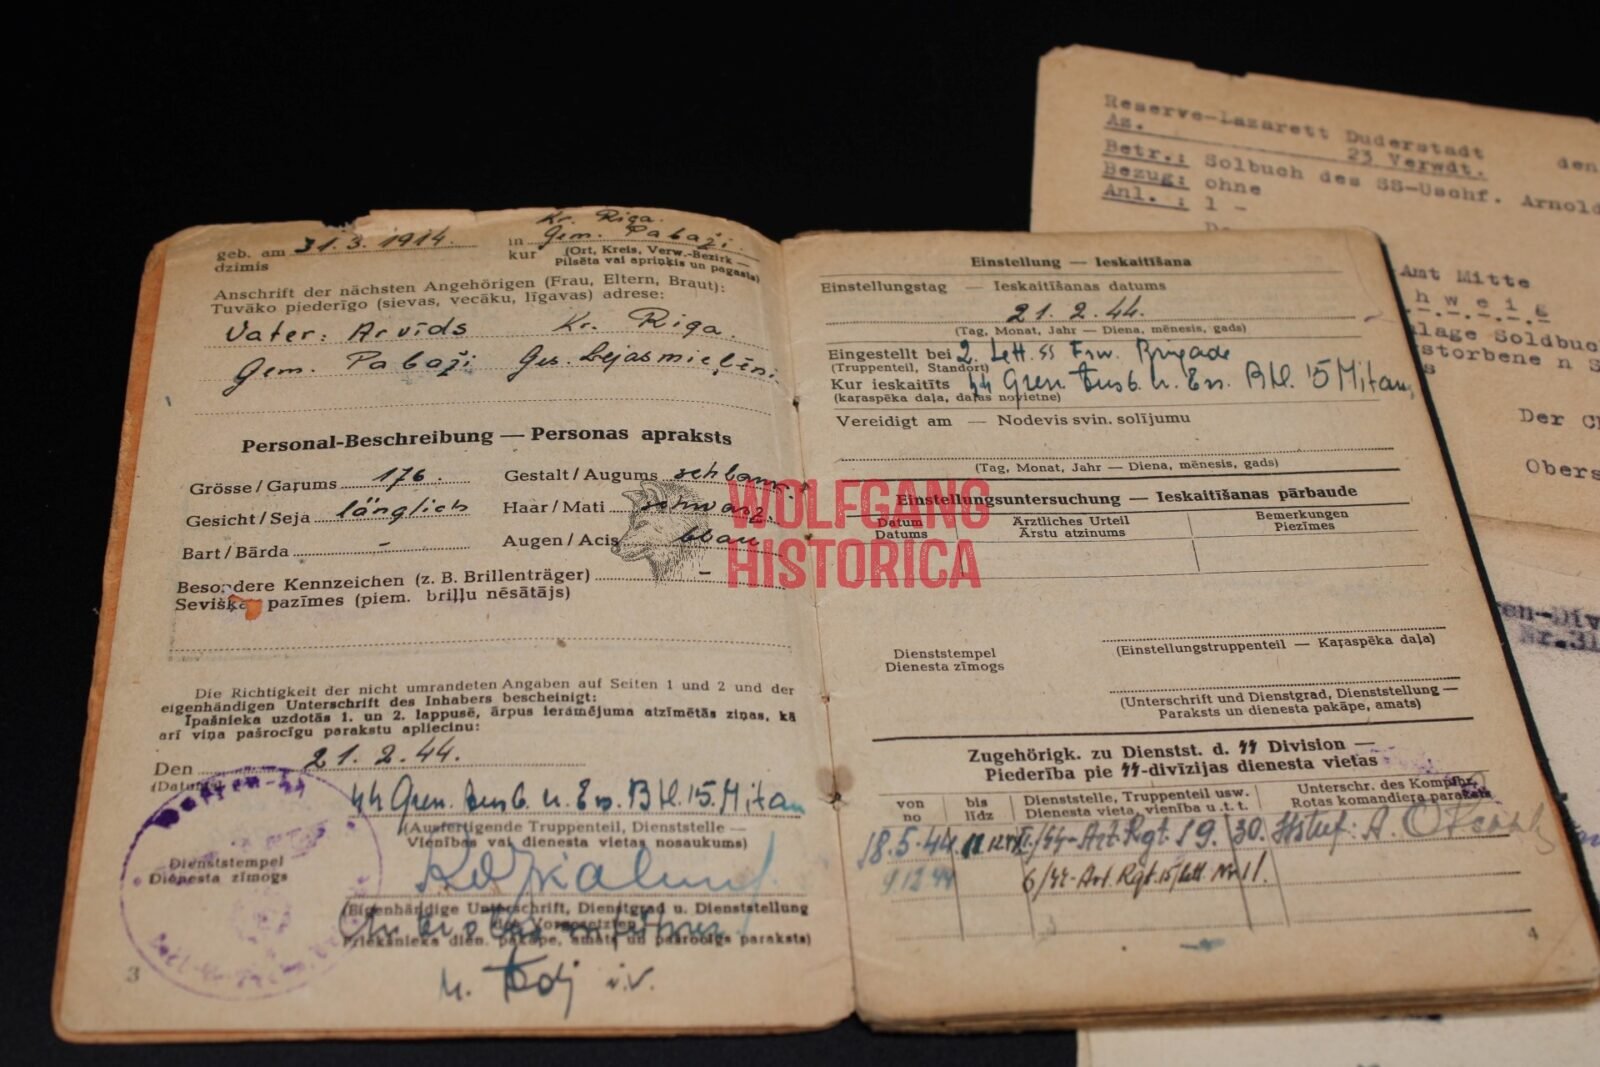 Kr. Riga.
geb. am 31.3.1914. in Gem. Pabaži.
dzimis kur (Ort, Kreis, Verw.-Bezirk —
Pilsēta vai apriņķis un pagasts)
Anschrift der nächsten Angehörigen (Frau, Eltern, Braut):
Tuvāko piederīgo (sievas, vecāku, līgavas) adrese:
Vater: Arvīds Kr. Riga.
Gem. Pabaži Ges. Lejasmielēni.
Personal-Beschreibung — Personas apraksts
Grösse/Gaŗums 176. Gestalt/Augums schlank.
Gesicht/Seja länglich Haar/Mati schwarz.
Bart/Bārda - Augen/Acis blau
Besondere Kennzeichen (z. B. Brillenträger) -
Sevišķas pazīmes (piem. briļļu nēsātājs)
Die Richtigkeit der nicht umrandeten Angaben auf Seiten 1 und 2 und der
eigenhändigen Unterschrift des Inhabers bescheinigt:
Īpašnieka uzdotās 1. un 2. lappusē, ārpus ierāmējuma atzīmētās ziņas, kā
arī viņa pašrocīgu parakstu apliecinu:
Den 21. 2. 44.
(Datums)
Waffen-SS
SS Gren. Ausb. u. Ers. Btl. 15. Mitau
(Ausfertigende Truppenteil, Dienststelle —
Vienības vai dienesta vietas nosaukums)
Dienststempel
Dienesta zīmogs
(Eigenhändige Unterschrift, Dienstgrad u. Dienststellung
des Vorgesetzten
Priekšnieka dien. pakāpe, amats un pašrocīgs paraksts)
u. Adj i.V.
3
Einstellung — Ieskaitīšana
Einstellungstag — Ieskaitīšanas datums
21. 2. 44.
(Tag, Monat, Jahr — Diena, mēnesis, gads)
Eingestellt bei 2. Lett. SS Frw. Brigade
(Truppenteil, Standort)
Kur ieskaitīts SS Gren. Ausb. u. Ers. Btl. 15 Mitau,
(kaŗaspēka daļa, daļas novietne)
Vereidigt am — Nodevis svin. solījumu
(Tag, Monat, Jahr — Diena, mēnesis, gads)
Einstellungsuntersuchung — Ieskaitīšanas pārbaude
Datum Ärztliches Urteil Bemerkungen
Datums Ārstu atzinums Piezīmes
(Einstellungstruppenteil — Kaŗaspēka daļa)
Dienststempel
Dienesta zīmogs
(Unterschrift und Dienstgrad, Dienststellung —
Paraksts un dienesta pakāpe, amats)
Zugehörigk. zu Dienstst. d. SS Division —
Piederība pie SS-divīzijas dienesta vietas
von bis Dienststelle, Truppenteil usw. Unterschr. des Kompfhr.
no līdz Dienesta vieta, vienība u. t. t. Rotas komandiera paraksts
18.5.44 11.12.44 II/SS-Art. Rgt. 19. 30. Hstuf: A.
9 12 44 6/SS-Art. Rgt. 15/lett. Nr. 1/.
4
WOLFGANG
HISTORICA
Reserve-Lazarett Duderstadt den
Az. 23 Verwdt.
Betr.: Solbuch des SS-Uschf. Arnold
Bezug: ohne
Anl. : 1 -
Amt Mitte
h w e i g
lage Soldbuc
storbene n S
s
Der Ch
Obers
en-Div
Nr.31